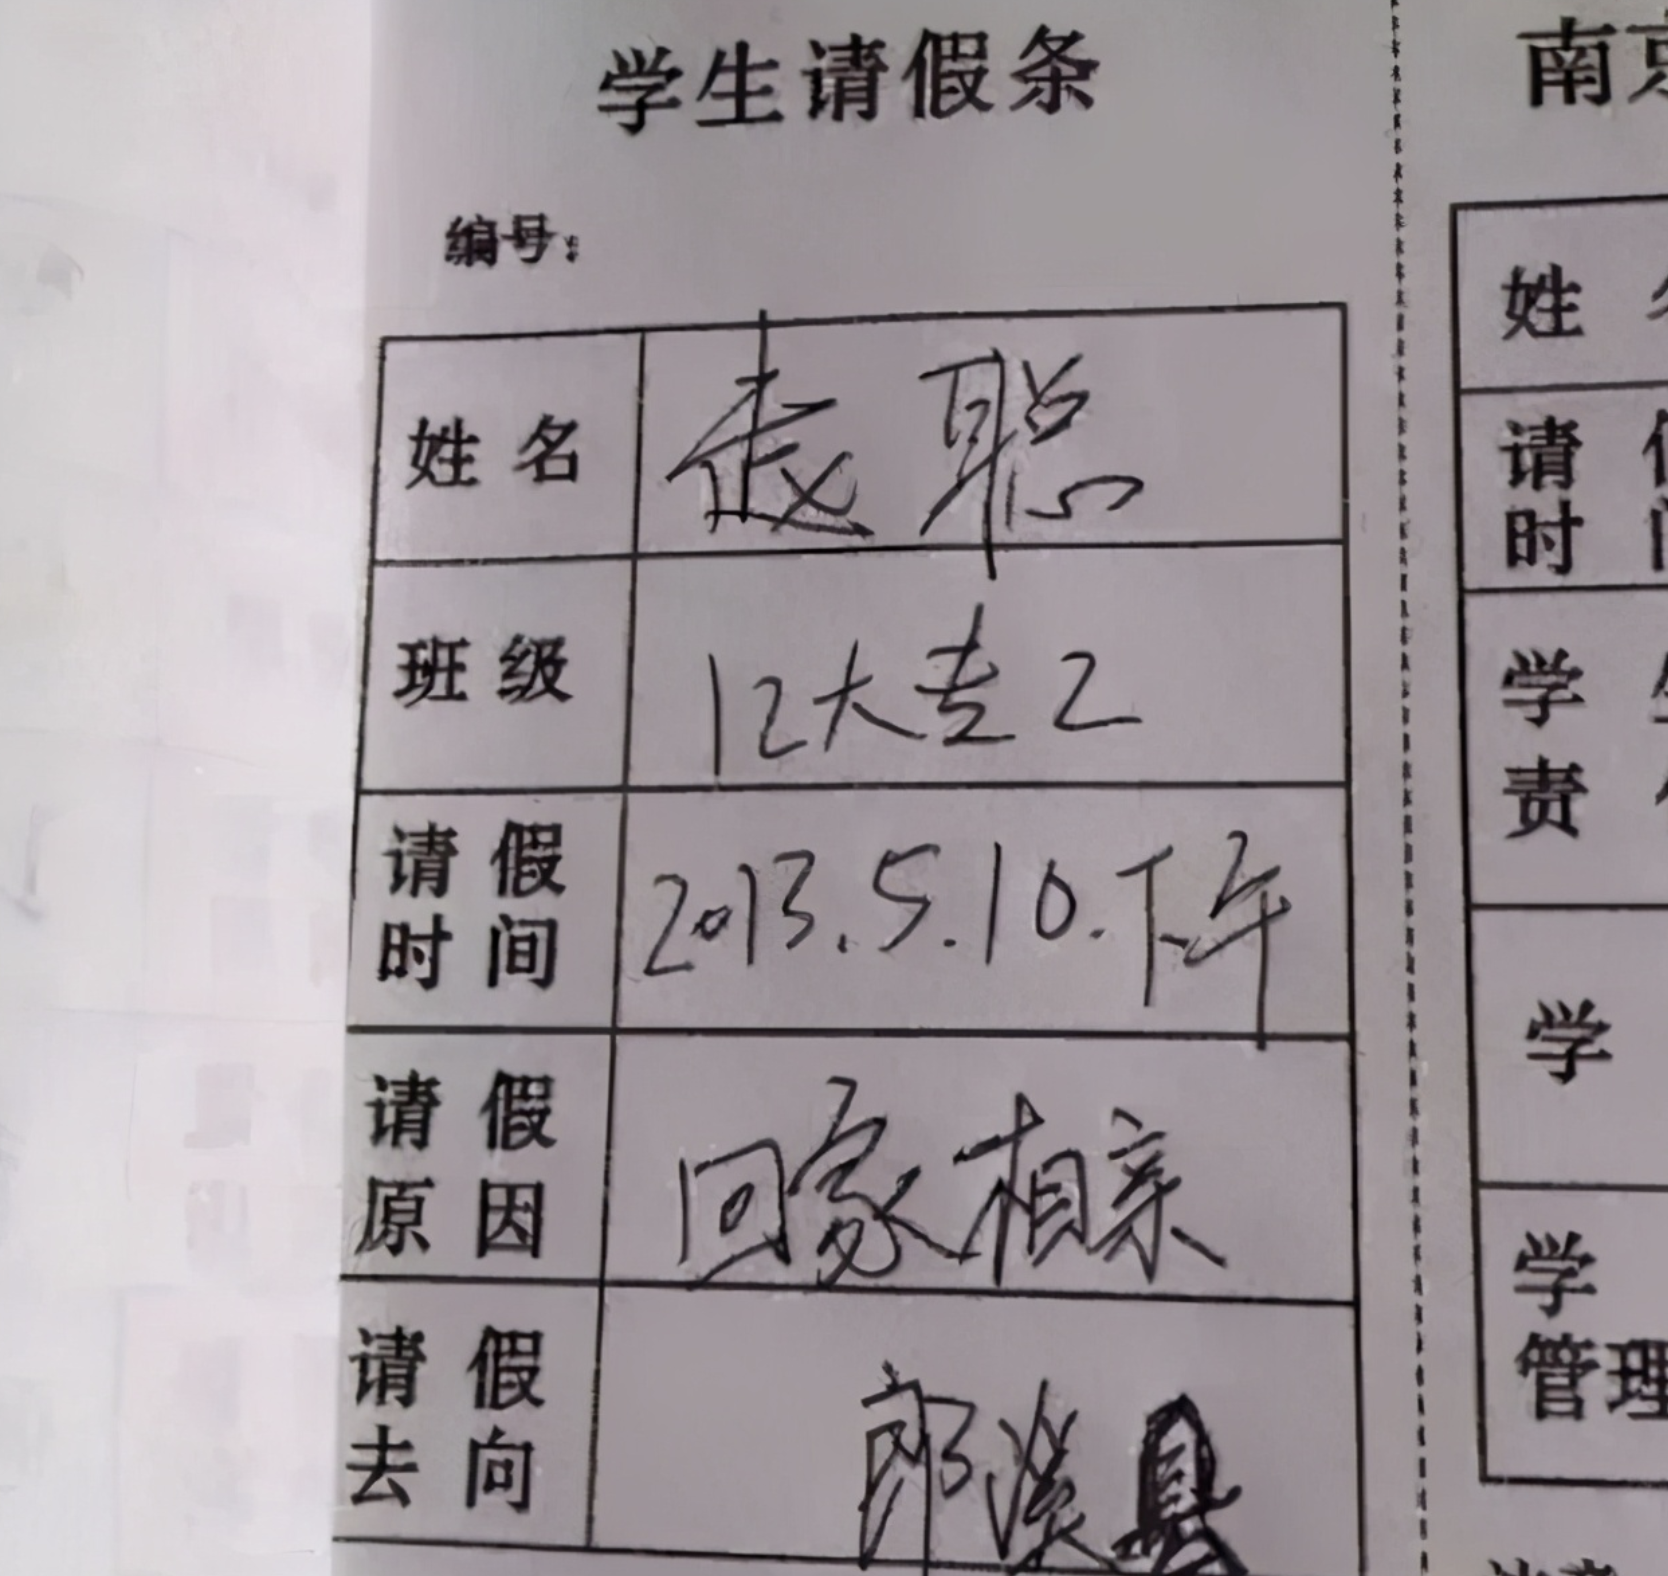 学生请假条
编号:
姓名 赵聪
班级 12大专2
请假时间 2013.5.10.下午
请假原因 回家相亲
请假去向 郎溪县
南京
姓
请
时
学
责
学
学
管理